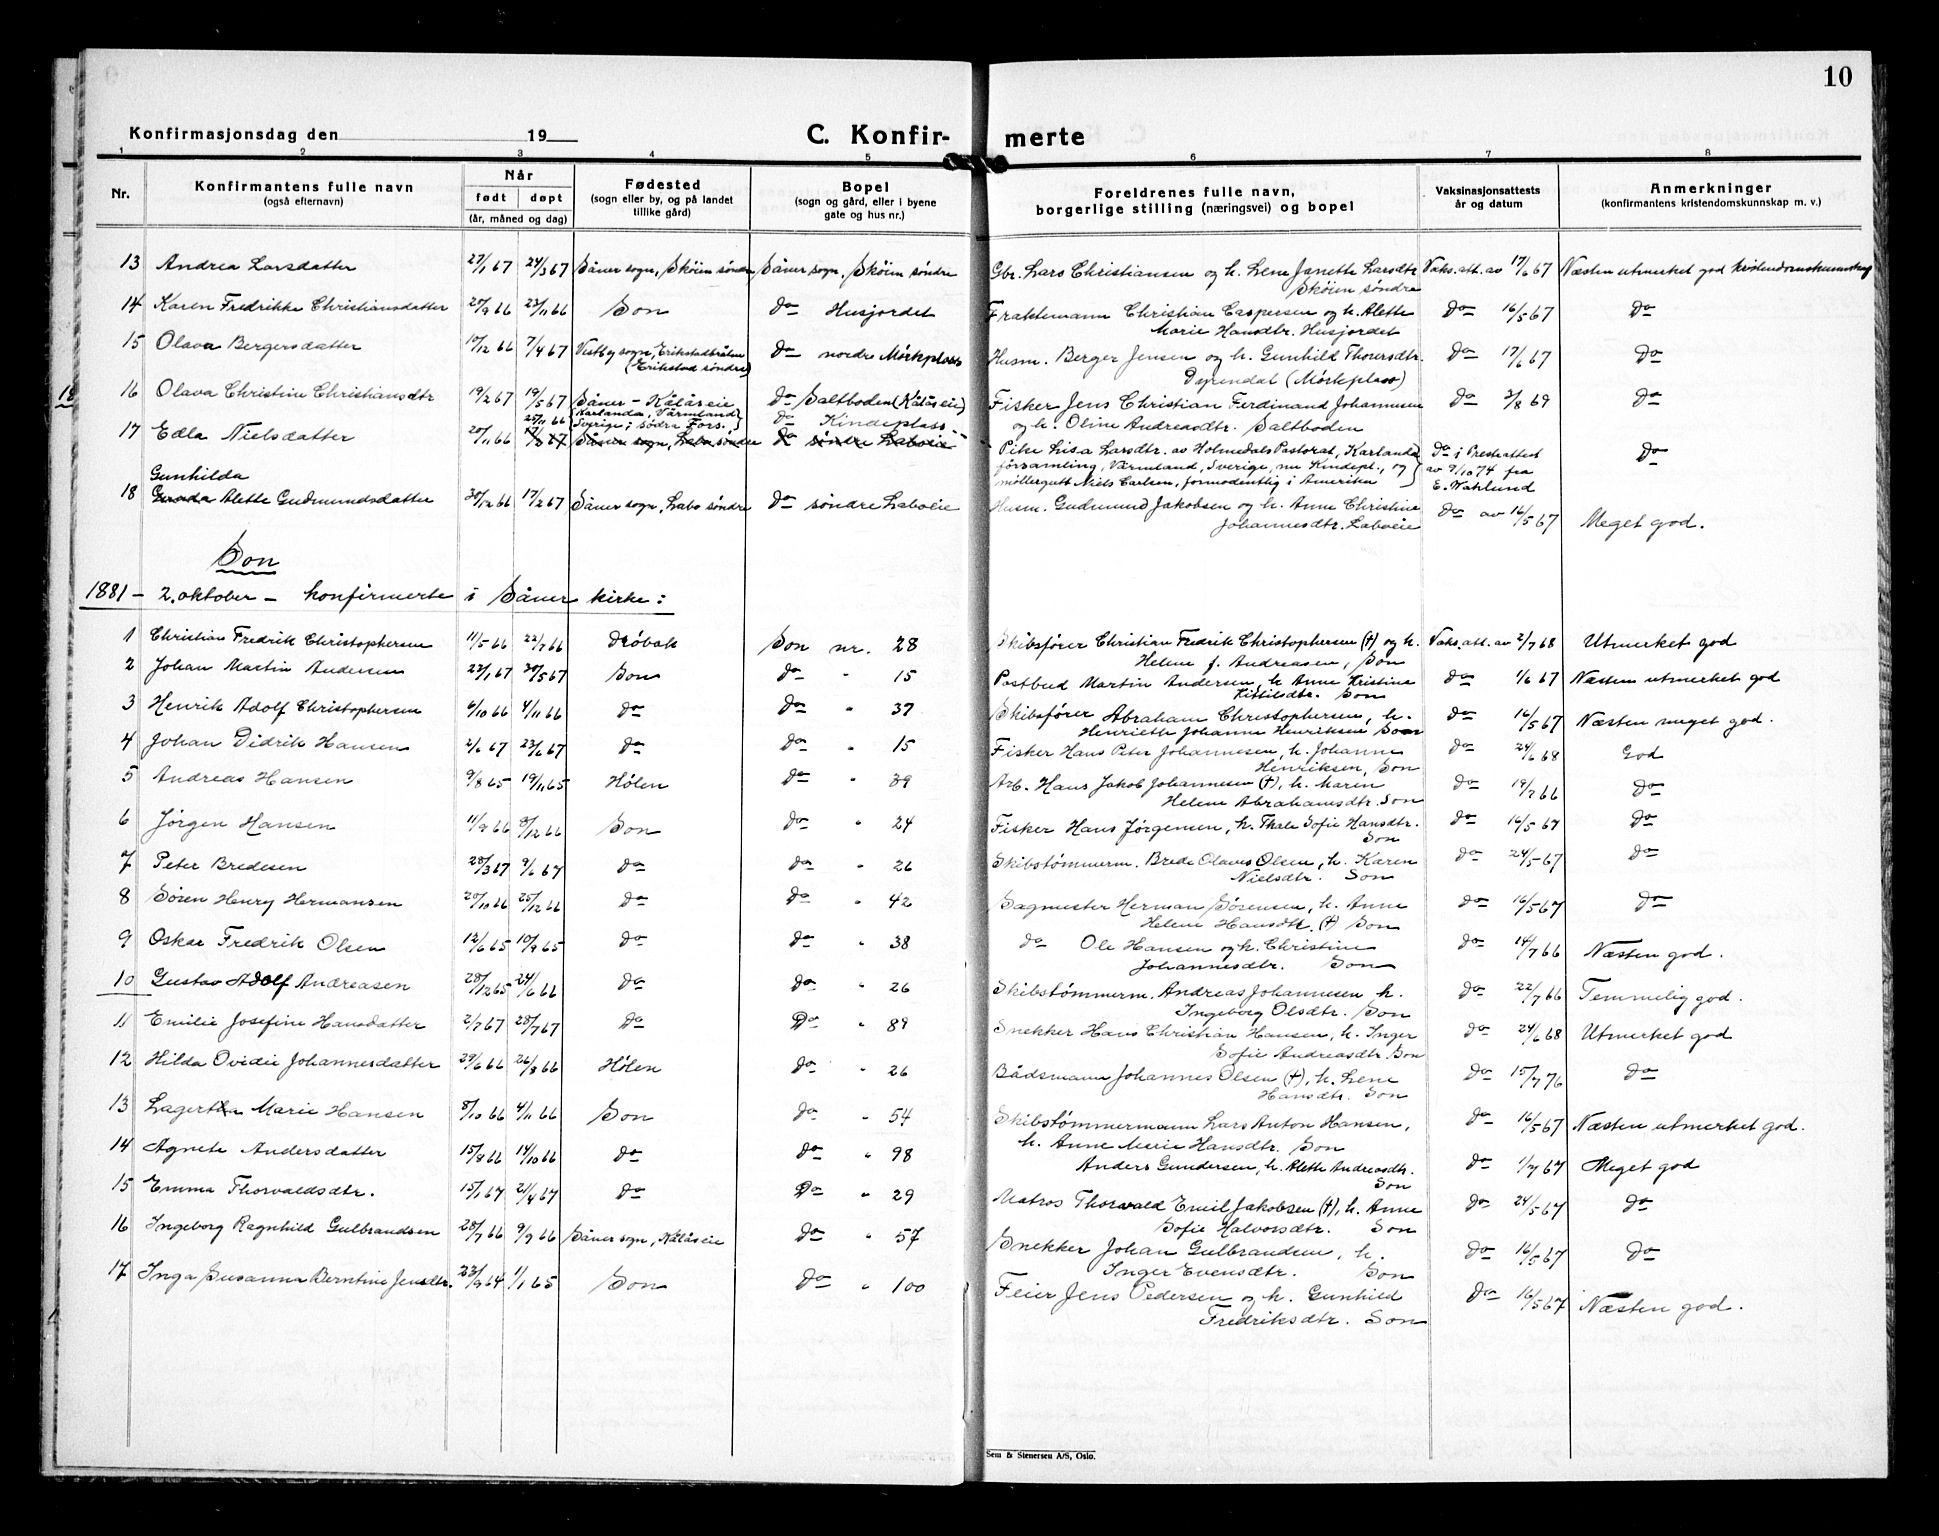 10
Konfirmasjonsdag den 19
C. Konfirmerte
1 2 3 4 5 6 7 8
Nr. Konfirmantens fulle navn (også efternavn) Når født døpt (år, måned og dag) Fødested (sogn eller by, og på landet tillike gård) Bopel (sogn og gård, eller i byene gate og hus nr.) Foreldrenes fulle navn, borgerlige stilling (næringsvei) og bopel Vaksinasjonsattests år og datum Anmerkninger (konfirmantens kristendomskunnskap m. v.)
13 Andrea Larsdatter 27/1 67 24/3 67 Såner sogn, Sköien söndre Såner sogn, Sköien söndre Gbr. Lars Christiansen og h. Lene Janette Larsdtr Vaks. att. av 17/6 67 Næsten utmerket god kristendomskunnskap
Sköien söndre
14 Karen Fredrikke Christiansdatter 20/9 66 23/11 66 Son do Husjordet Fraktemann Christian Caspersen og h. Alette do 16/5 67 do
Marie Hansdtr. Husjordet
15 Olava Bergersdatter 10/12 66 7/4 67 Vestby sogn, Erikstadbråten do nordre Mörkplass Husm. Berger Jensen og h. Gunhild Thorersdtr. do 17/6 67 do
(Erikstad söndre) Dyrendal (Mörkplass)
18
16 Olava Christine Christiansdtr 19/2 67 19/5 67 Såner - Kålåseie do Saltboden (Kålåseie) Fisker Jens Christian Ferdinand Johannesen do 3/8 69 do
og h. Oline Andreasdtr. Saltboden
25/11 66 (Karlanda, Värmland, Sverige; södra Fors.) do Kindeplass
17 Edla Nielsdatter 20/11 66 Såner sogn, Labo söndre do söndre Laboeie Pike Lisa Larsdtr. av Holmedals Pastorat, Karlanda do i Prestattest do
församling, Värmland, Sverige, nu Kindepl., og av 9/10 74 fra
möllergutt Niels Carlsen, formodentlig i Amerika E. Wahlund
Gunhilda
18 Alette Gudmundsdatter 30/12 66 17/2 67 Såner sogn, Labo söndre do söndre Laboeie Husm. Gudmund Jakobsen og h. Anne Christine do av 16/5 67 Meget god.
Johannesdtr. Laboeie
Son
1881 - 2. oktober - konfirmerte i Såner kirke:
1 Christian Fredrik Christophersen 11/5 66 22/7 66 Dröbak Son nr. 28 Skibsförer Christian Fredrik Christophersen (†) og h. Vaks. att. av 2/7 68 Utmerket god
Helene f. Andreasen, Son
2 Johan Martin Andersen 23/1 67 30/5 67 Son do " 15 Postbud Martin Andersen, h. Anne Kristine do 1/6 67 Næsten utmerket god
Kittilsdtr. Son
3 Henrik Adolf Christophersen 6/10 66 4/11 66 do do " 37 Skibsförer Abraham Christophersen, h. do 16/5 67 Næsten meget god.
Henrieth Johanne Henriksen Son
4 Johan Didrik Hansen 2/6 67 23/6 67 do do " 15 Fisker Hans Peter Johannesen, h. Johanne do 24/6 68 God
Henriksen, Son
5 Andreas Hansen 9/8 65 19/11 65 Hölen do " 39 Arb. Hans Jakob Johannesen (†), h. Maren do 19/7 66 do
Helene Abrahamsdtr. Son
6 Jörgen Hansen 11/9 66 8/12 66 Son do " 24 Fisker Hans Jörgensen, h. Thale Sofie Hansdtr. do 16/5 67 do
Son
7 Peter Bredesen 28/3 67 9/6 67 do do " 26 Skibstömmerm. Brede Olaves Olsen, h. Karen do 24/5 67 do
Nielsdtr. Son
8 Sören Henry Hermansen 20/10 66 25/12 66 do do " 42 Sagmester Herman Sörensen, h. Anne do 16/5 67 do
Helene Hansdtr. (†) Son
9 Oskar Fredrik Olsen 12/6 65 10/9 65 do do " 38 do Ole Hansen og h. Christine do 14/7 66 Næsten god.
Johannesdtr. Son
10 Gustav Adolf Andreasen 28/12 65 24/6 66 do do " 26 Skibstömmerm. Andreas Johannesen h. do 22/7 66 Temmelig god.
Ingeborg Olsdtr. Son
11 Emilie Josefine Hansdatter 2/7 67 28/7 67 do do " 89 Snekker Hans Christian Hansen, h. Inger do 24/6 68 Utmerket god
Sofie Andreasdtr Son
12 Hilda Ovidie Johannesdatter 29/6 66 26/8 66 Hölen do " 26 Bådsmann Johannes Olsen (†), h. Lene do 15/7 76 do
Hansdtr. Son
13 Lagertha Marie Hansen 8/10 66 4/11 66 Son do " 54 Skibstömmermann Lars Anton Hansen, do 16/5 67 Næsten utmerket god.
h. Anne Marie Hansdtr. Son
14 Agnete Andersdatter 15/8 66 14/10 66 do do " 98 Anders Gundersen, h. Alette Andreasdtr. do 1/7 67 Meget god
Son
15 Emma Thorvaldsdtr. 15/1 67 21/4 67 do do " 29 Matros Thorvald Emil Jakobsen (†), h. Anne do 24/5 67 do
Sofie Halvorsdtr. Son
16 Ingeborg Ragnhild Gulbrandsen 28/7 66 9/9 66 Såner sogn, Kålåseie do " 57 Snekker Johan Gulbrandsen, h. do 16/5 67 do
Inger Evensdtr. Son
17 Inga Susanna Berntine Jensdtr. 23/9 64 1/1 65 Son do " 100 Feier Jens Pedersen og h. Gunhild do 16/5 67 Næsten god.
Fredriksdtr. Son
Sem & Stenersen A/S, Oslo.